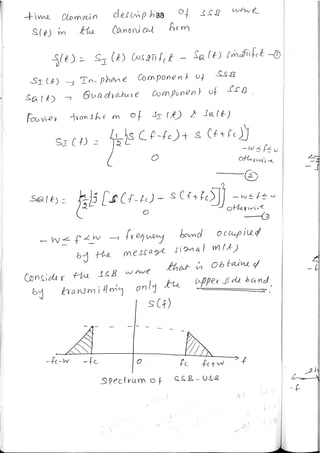 time domain description of SSB wave
S(t) in the canonical form
S(t) = SI(t) cos2πfct - SQ(t) sin2πfct —①
SI(t) → In-phase component of SSB
SQ(t) → Quadrature component of SSB.
Fourier transform of SI(t) & SQ(t)
SI(f) = { ½[S(f-fc) + S(f+fc)] -w≤f≤w
0 otherwise
—②
SQ(f) = { j[S(f-fc) - S(f+fc)] -w≤f≤w
0 otherwise
—③
-w≤f≤w → frequency band occupied
by the message signal m(t)
Consider the SSB wave that is obtained
by transmitting only the upper side band.
S(f)
-fc-w -fc 0 fc fc+w f
Spectrum of SSB-USB